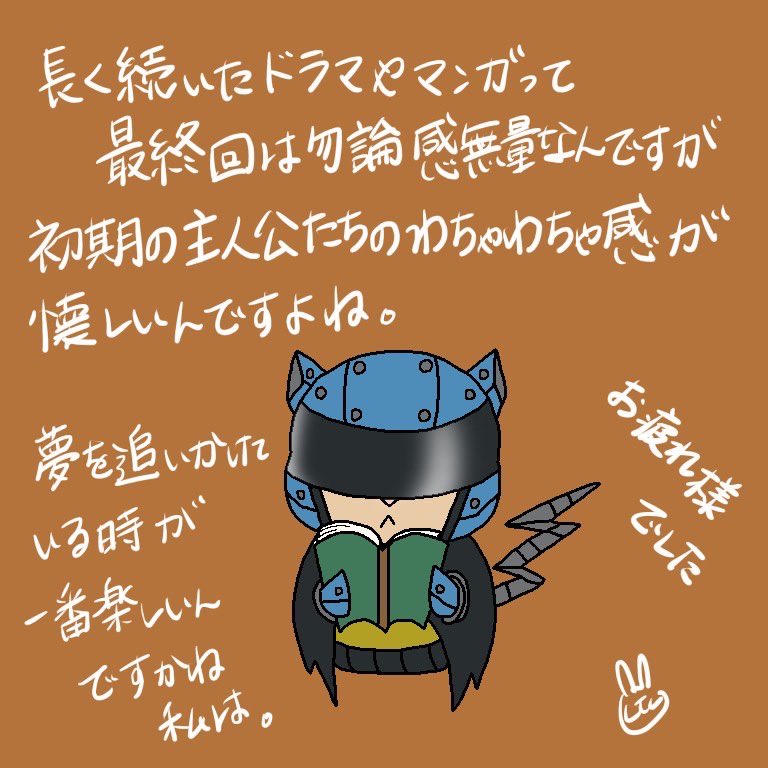 長く続いたドラマやマンガって
最終回は勿論感無量なんですが
初期の主人公たちのわちゃわちゃ感が
懐しいんですよね。
夢を追いかけて
いる時が
一番楽しいん
ですかね
私は。
お疲れ様
でした